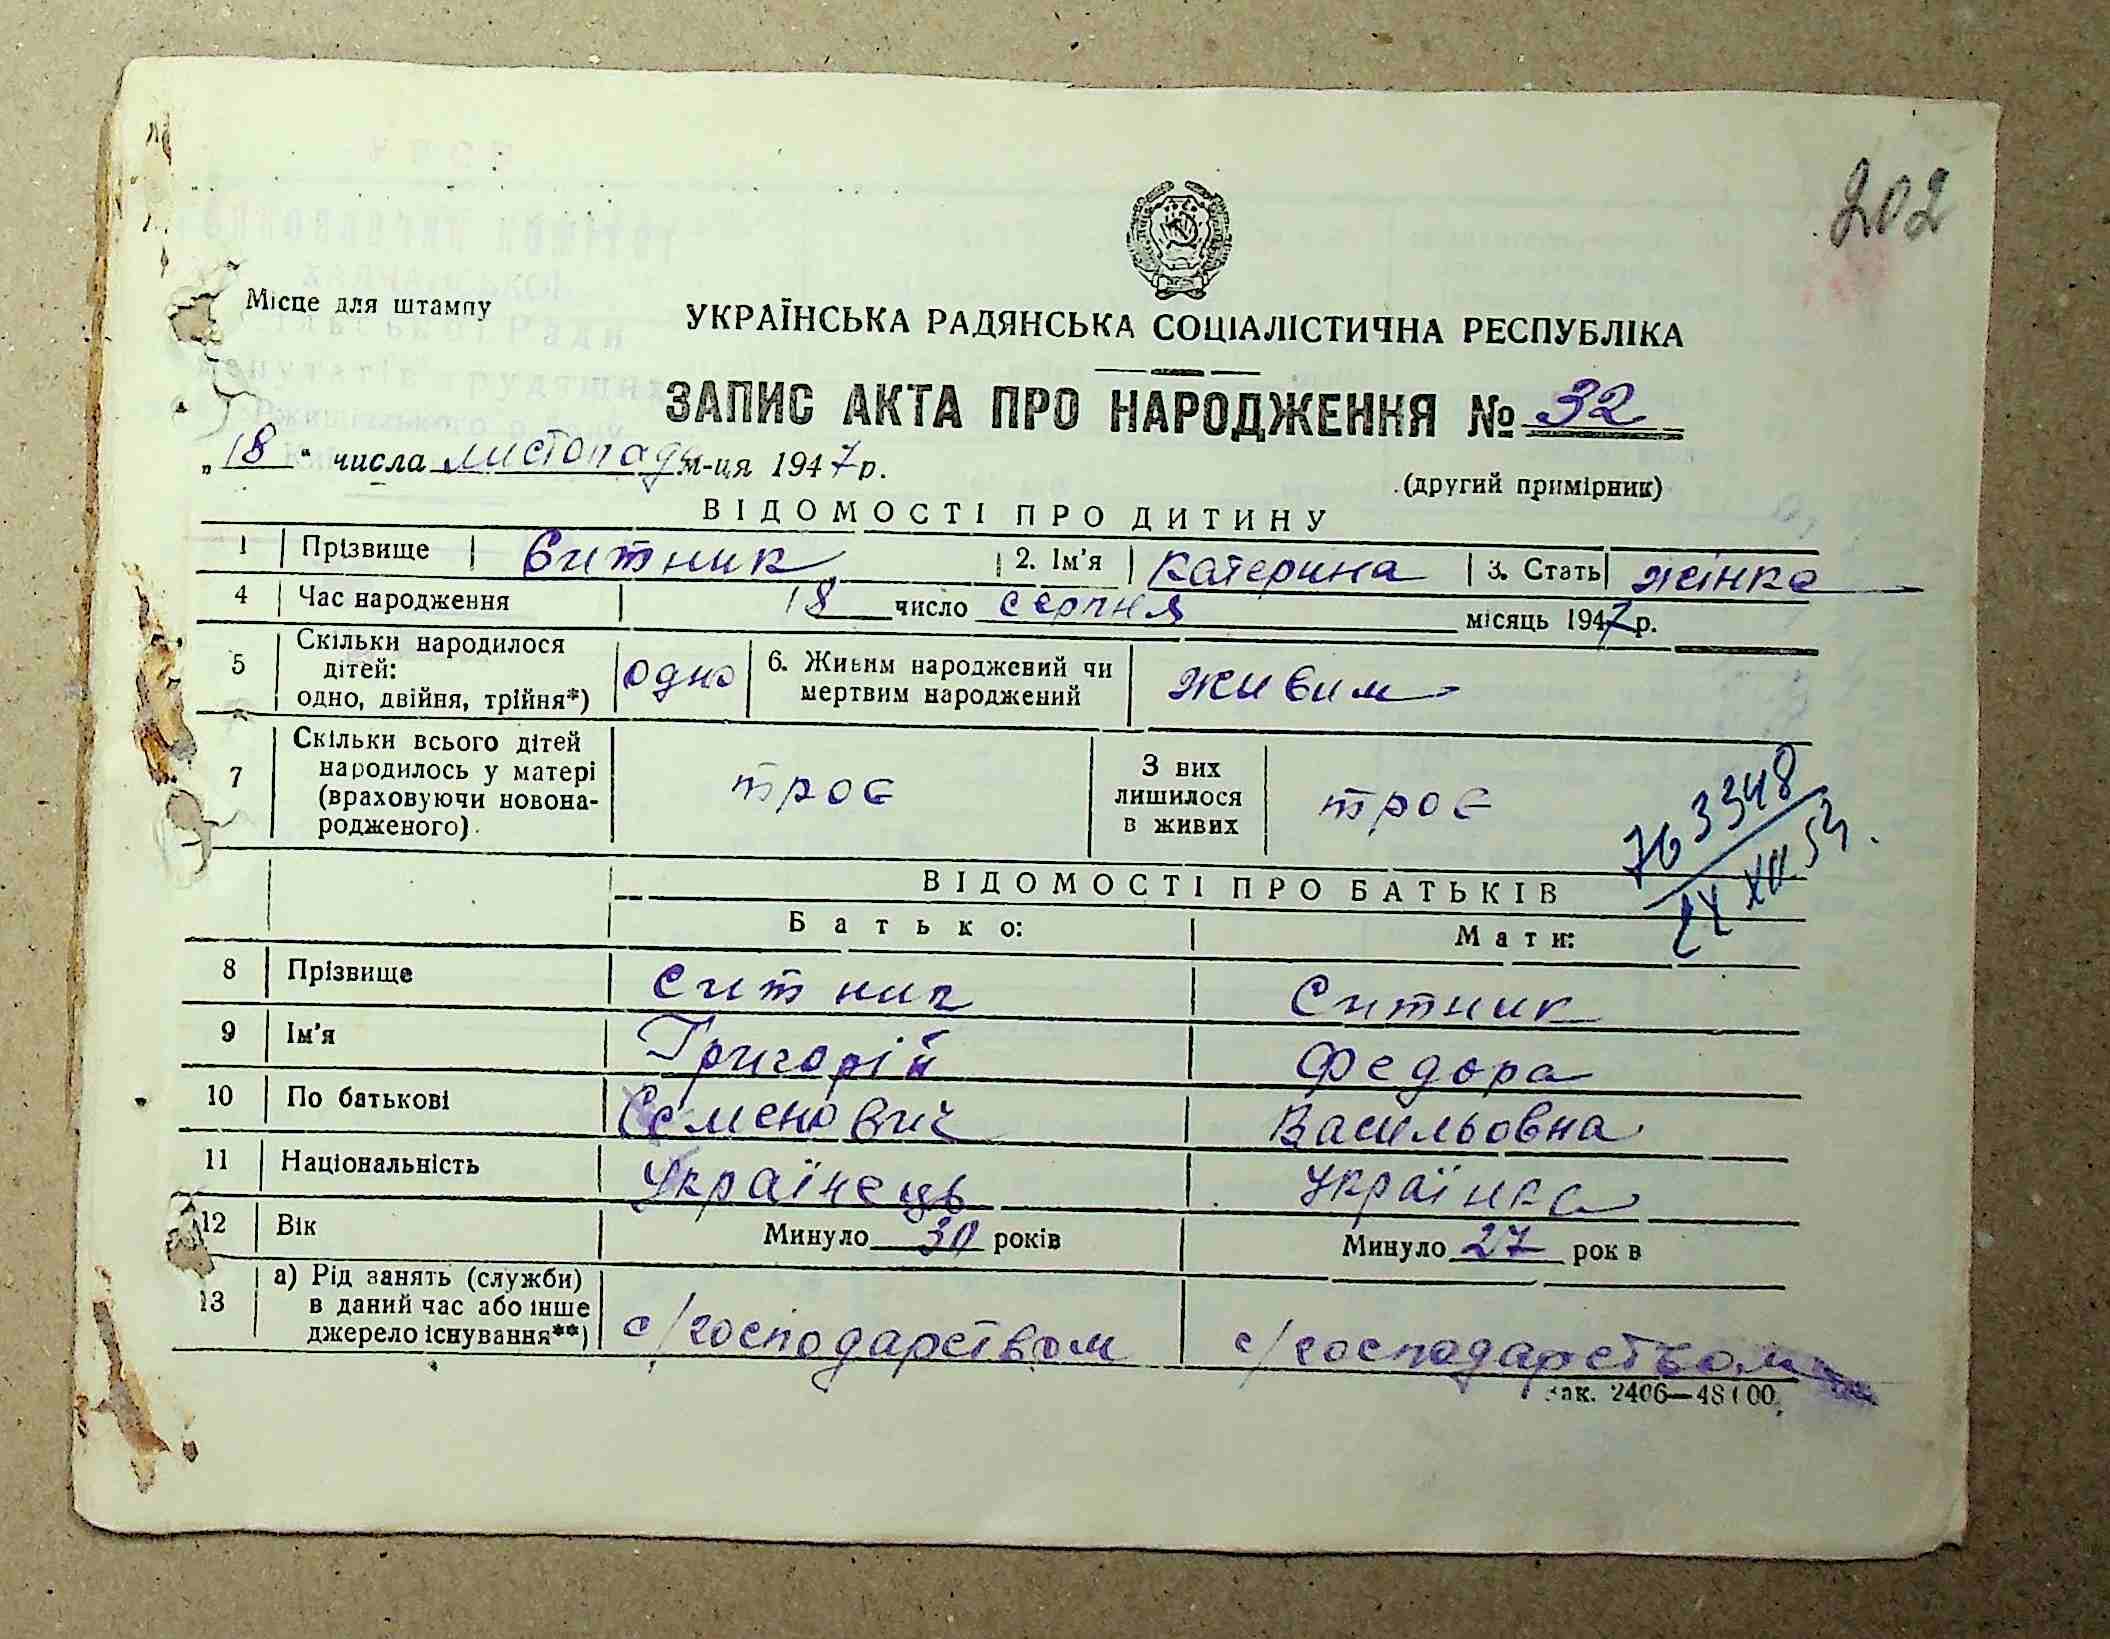 202
Місце для штампу
УКРАЇНСЬКА РАДЯНСЬКА СОЦІАЛІСТИЧНА РЕСПУБЛІКА
ЗАПИС АКТА ПРО НАРОДЖЕННЯ № 32
„18“ числа листопада м-ця 1947 р.
(другий примірник)
ВІДОМОСТІ ПРО ДИТИНУ
1 Прізвище Ситник 2. Ім'я Катерина 3. Стать жінка
4 Час народження 18 число серпня місяць 1947 р.
5 Скільки народилося дітей: одно, двійня, трійня*) одно 6. Живим народжений чи мертвим народжений живим
7 Скільки всього дітей народилось у матері (враховуючи новонародженого). троє З них лишилося в живих троє
763348
ВІДОМОСТІ ПРО БАТЬКІВ
Батько: Мати:
8 Прізвище Ситник Ситник
9 Ім'я Григорій Федора
10 По батькові Семенович Васильовна
11 Національність Українець Українка
12 Вік Минуло 30 років Минуло 27 рок в
13 а) Рід занять (служби) в даний час або інше джерело існування**) с/господарством с/господарством
Зак. 2406—48100